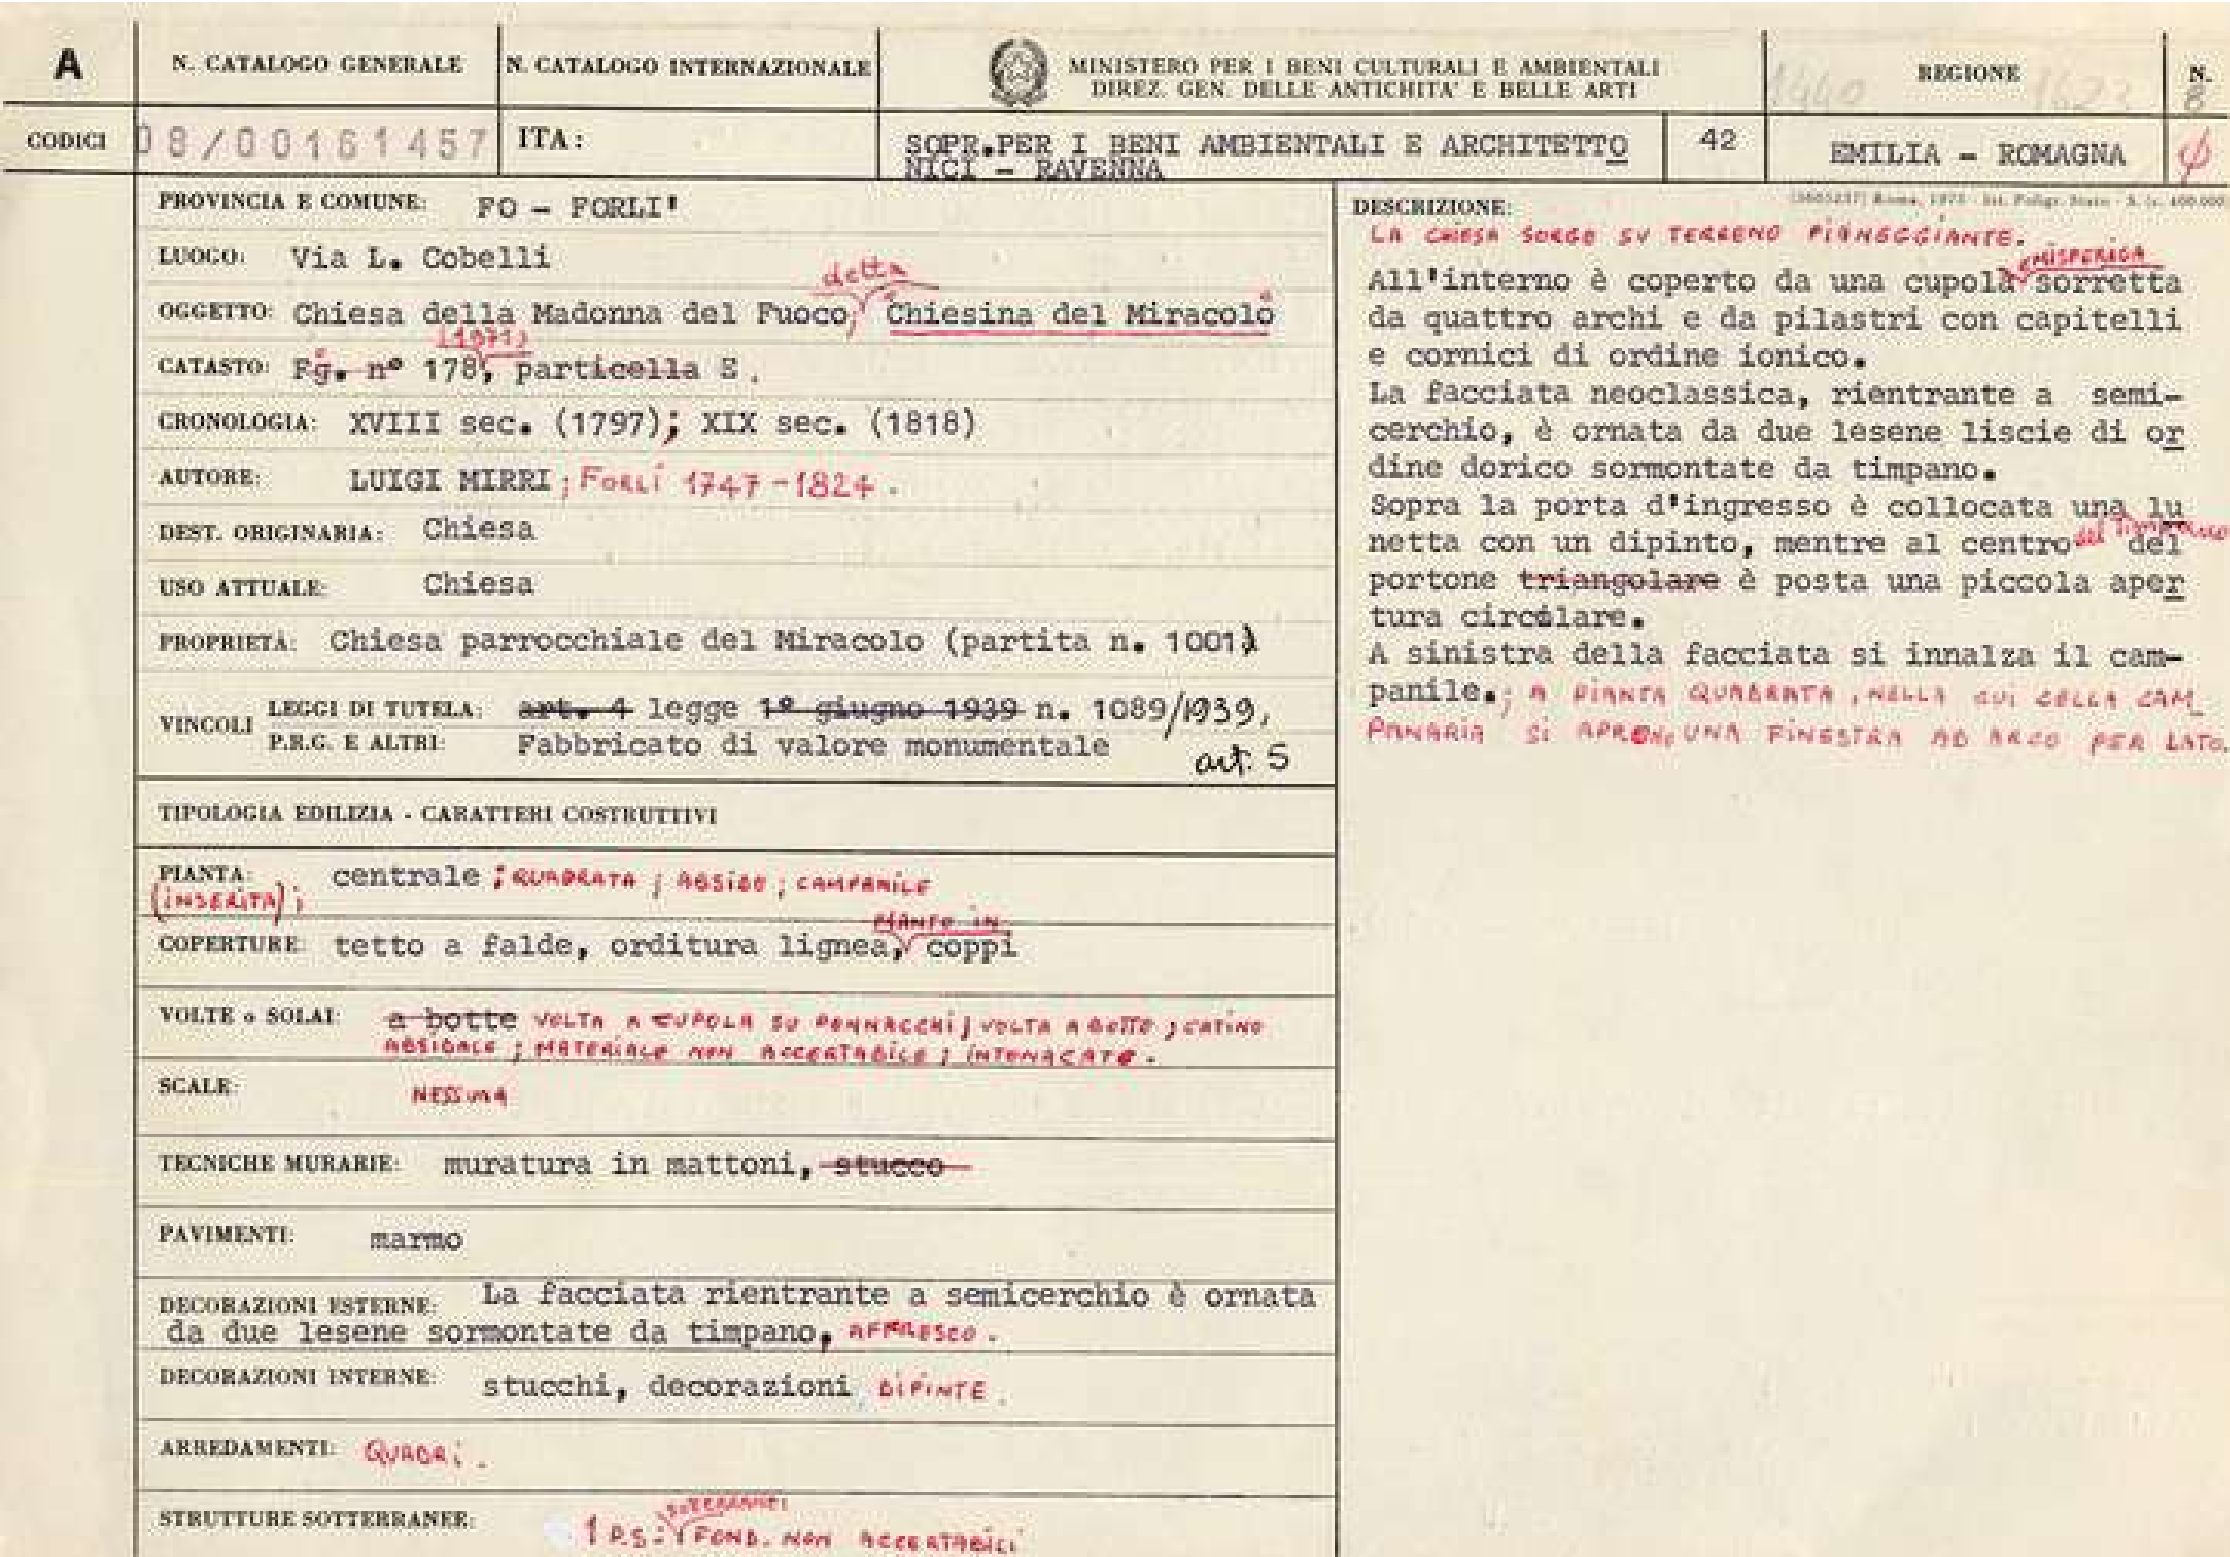 A
N. CATALOGO GENERALE
N. CATALOGO INTERNAZIONALE
MINISTERO PER I BENI CULTURALI E AMBIENTALI
DIREZ. GEN. DELLE ANTICHITA' E BELLE ARTI
1440
REGIONE
1623
N.
CODICI
08/00161457
ITA:
SOPR.PER I BENI AMBIENTALI E ARCHITETTO
NICI - RAVENNA
42
EMILIA - ROMAGNA
PROVINCIA E COMUNE: FO - FORLI'
LUOGO: Via L. Cobelli
detta
OGGETTO: Chiesa della Madonna del Fuoco, Chiesina del Miracolo
(1971)
CATASTO: Fg. nº 178, particella E.
CRONOLOGIA: XVIII sec. (1797); XIX sec. (1818)
AUTORE: LUIGI MIRRI; FORLÍ 1747-1824.
DEST. ORIGINARIA: Chiesa
USO ATTUALE: Chiesa
PROPRIETÀ: Chiesa parrocchiale del Miracolo (partita n. 1001)
VINCOLI
LEGGI DI TUTELA: art. 4 legge 1º giugno 1939 n. 1089/1939,
P.R.G. E ALTRI: Fabbricato di valore monumentale art. 5
TIPOLOGIA EDILIZIA - CARATTERI COSTRUTTIVI
PIANTA: centrale; QUADRATA; ABSIDE; CAMPANILE
(INSERITA);
MANTO IN
COPERTURE: tetto a falde, orditura lignea, coppi
VOLTE o SOLAI: a botte VOLTA A CUPOLA SU PENNACCHI; VOLTA A BOTTE; CATINO
ABSIDALE; MATERIALE NON ACCERTABILE; INTONACATE.
SCALE: NESSUNA
TECNICHE MURARIE: muratura in mattoni, stucco
PAVIMENTI: marmo
DECORAZIONI ESTERNE: La facciata rientrante a semicerchio è ornata
da due lesene sormontate da timpano, AFFRESCO.
DECORAZIONI INTERNE: stucchi, decorazioni DIPINTE.
ARREDAMENTI: QUADRI.
SOTTERRANEI
STRUTTURE SOTTERRANEE: 1 P.S.: FOND. NON ACCERTABILI
DESCRIZIONE:
LA CHIESA SORGE SU TERRENO PIANEGGIANTE.
EMISFERICA
All'interno è coperto da una cupola sorretta
da quattro archi e da pilastri con capitelli
e cornici di ordine ionico.
La facciata neoclassica, rientrante a semi-
cerchio, è ornata da due lesene liscie di or
dine dorico sormontate da timpano.
Sopra la porta d'ingresso è collocata una lu
netta con un dipinto, mentre al centro del
portone triangolare è posta una piccola aper
tura circolare.
A sinistra della facciata si innalza il cam-
panile.; A PIANTA QUADRATA, NELLA CUI CELLA CAM
PANARIA SI APRE UNA FINESTRA AD ARCO PER LATO.